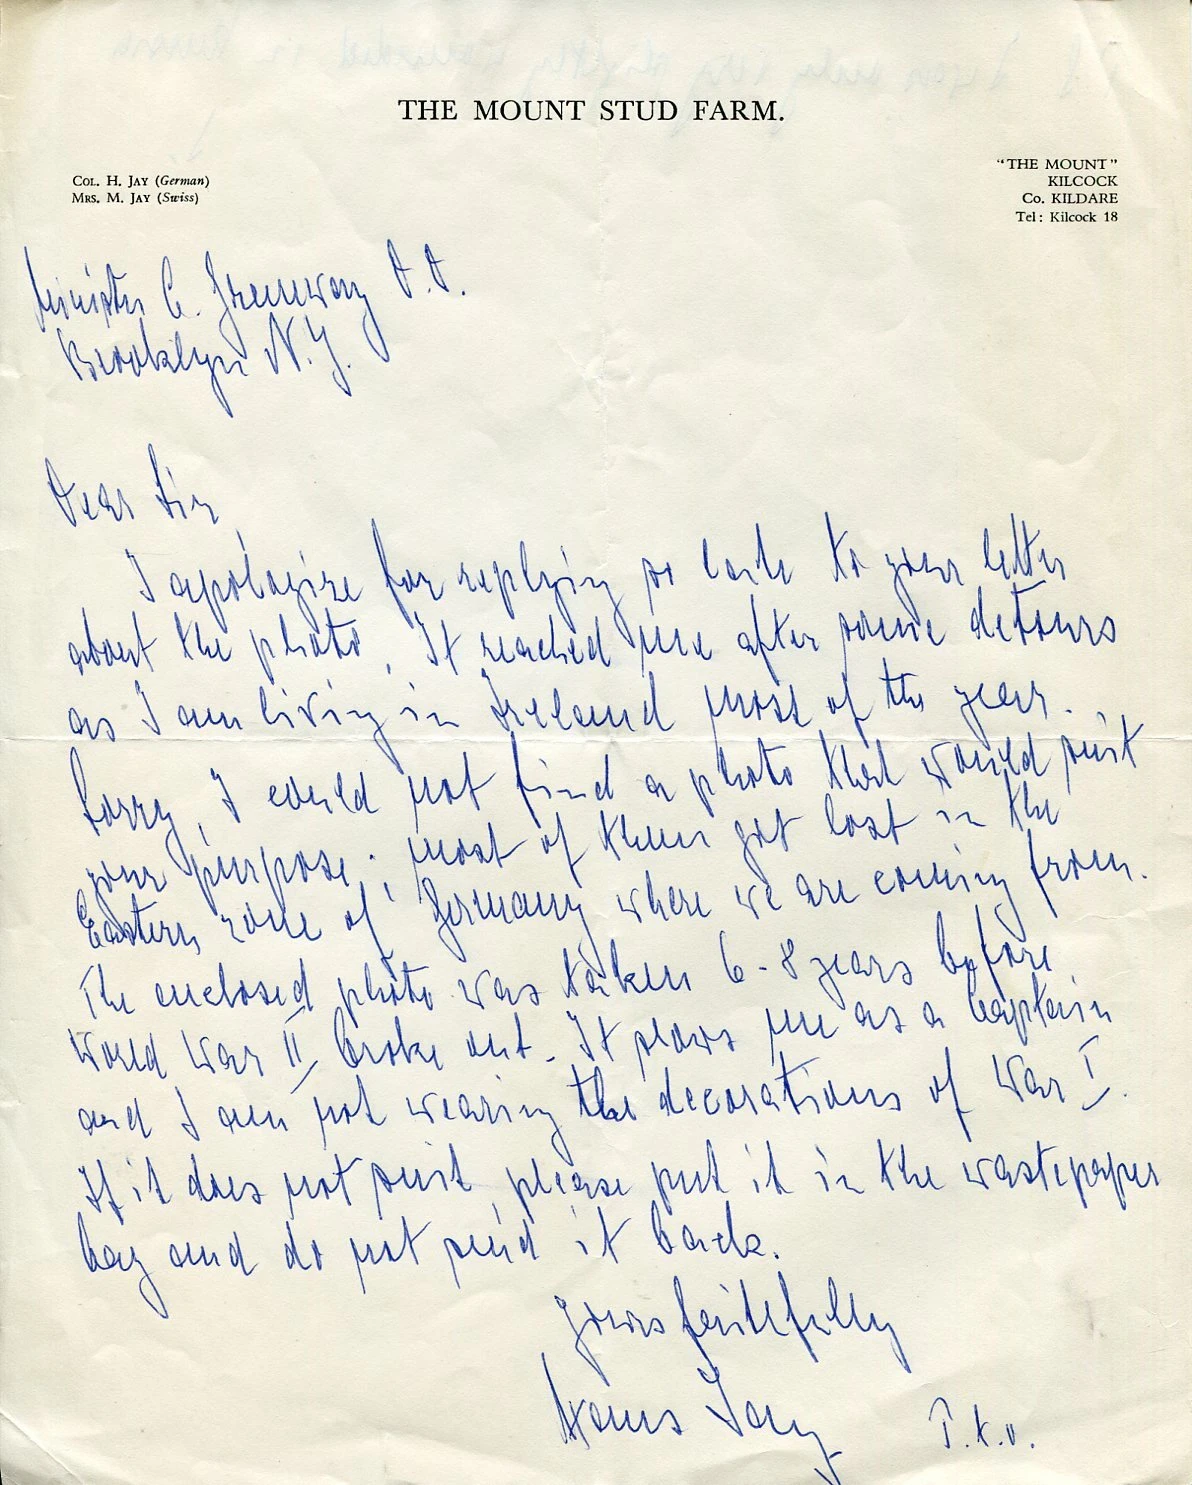 THE MOUNT STUD FARM.
Col. H. Jay (German)
Mrs. M. Jay (Swiss)
"THE MOUNT"
KILCOCK
Co. KILDARE
Tel: Kilcock 18
Minister C. Greenway D.D.
Brooklyn N.Y.
Dear Sir,
I apologize for replying so late to your letter
about the photo. It reached me after some detours
as I am living in Ireland most of the year.
Sorry, I could not find a photo that would suit
your purpose; most of them got lost in the
Eastern zone of Germany where we are coming from.
The enclosed photo was taken 6-8 years before
World War II broke out. It shows me as a Captain
and I am not wearing the decorations of War I.
If it does not suit, please put it in the wastepaper
bag and do not send it back.
Yours faithfully
Hans Jay